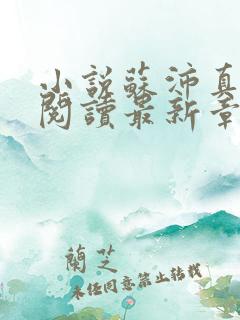 小説蘇沛真
閱讀最新章
蘭芝
未經同意禁止轉載